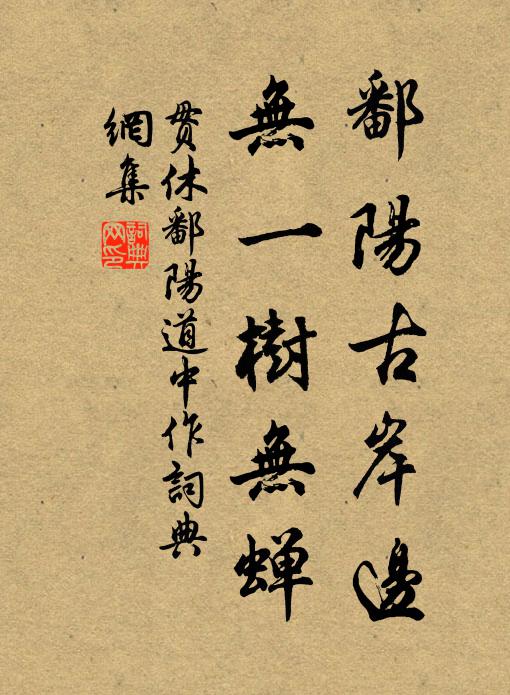 鄱陽古岸邊
無一樹無蟬
貫休鄱陽道中作詞典
網集
詞典网印